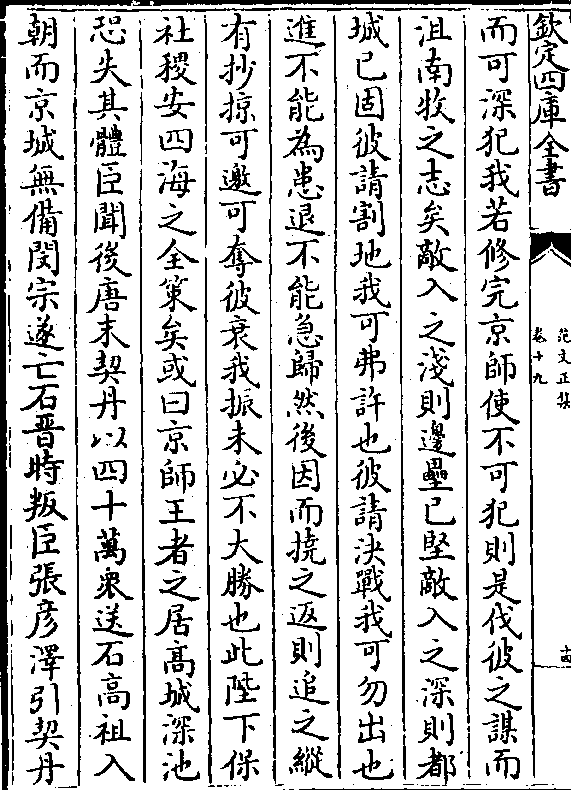 欽定四庫全書
范文正集
卷十九
十四
而可深犯我若修完京師使不可犯則是伐彼之謀而
沮南牧之志矣敵入之淺則邊壘已堅敵入之深則都
城已固彼請割地我可弗許也彼請決戰我可勿出也
進不能為患退不能急歸然後因而撓之返則追之縱
有抄掠可邀可奪彼衰我振未必不大勝也此陛下保
社稷安四海之全策矣或曰京師王者之居髙城深池
恐失其體臣聞後唐末契丹以四十萬衆送石高祖入
朝而京城無備閔宗遂亡石晋時叛臣張彦澤引契丹